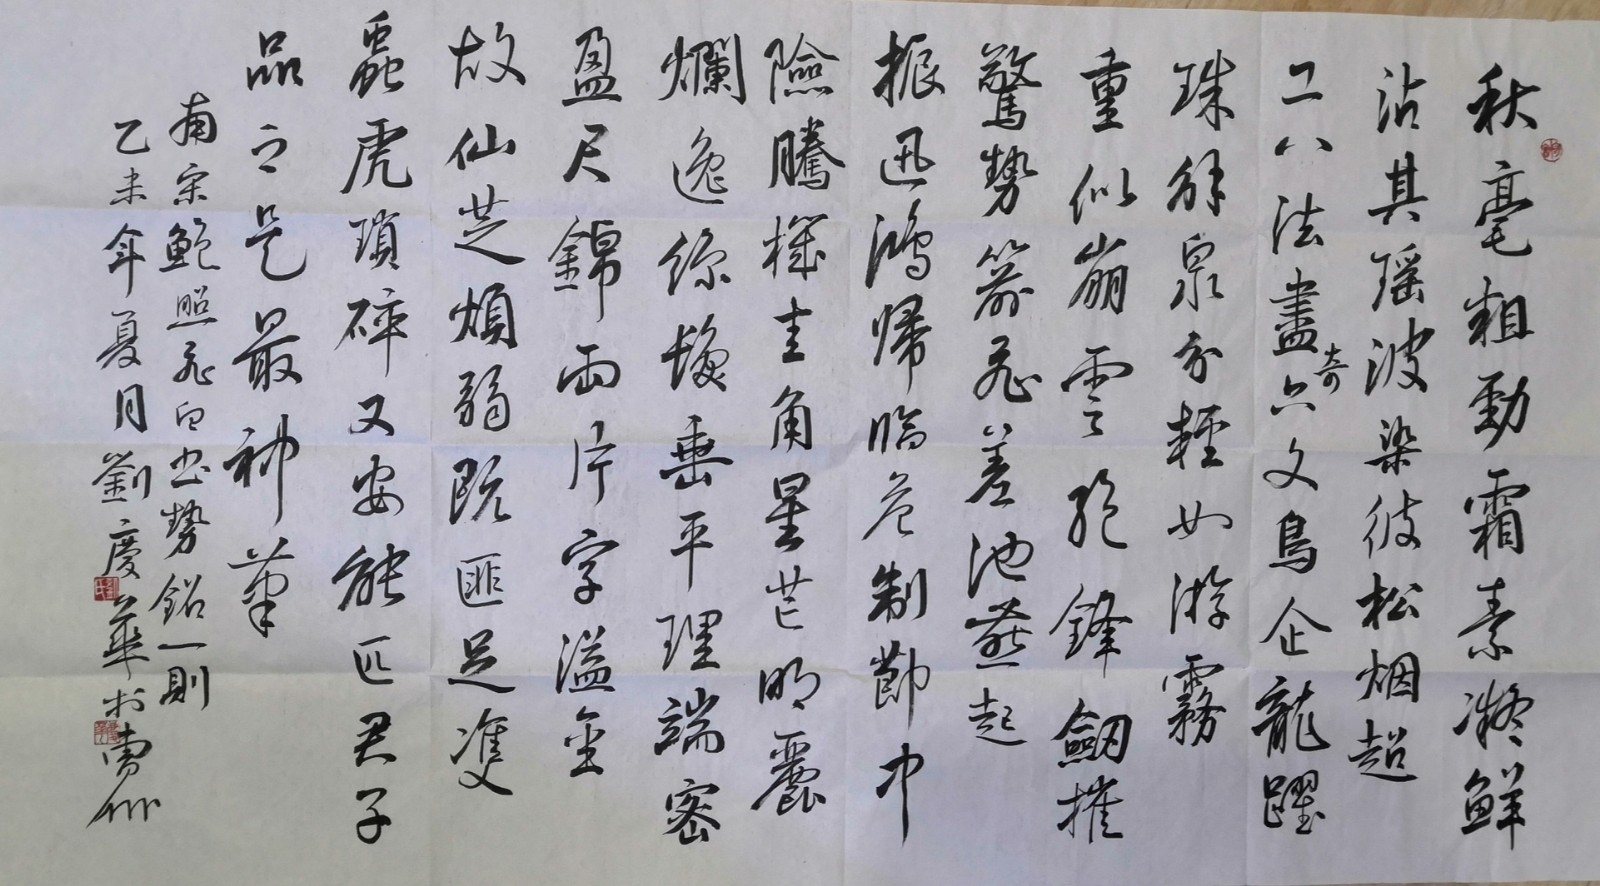 秋毫粗勁霜素凝鮮
沾其瑤波染彼松烟超
工八法盡奇六文鳥企龍躍
珠解泉分輕如游霧
重似崩雲絕鋒劍摧
驚勢箭飛差池燕起
振迅鴻歸臨危制節中
險騰機圭角星芒明麗
爛逸絲縈髮垂平理端密
盈尺錦兩片字溢金
故仙芝煩弱既匪足雙
蟲虎瑣碎又安能匹君子
品之是最神筆
南宋鮑照飛白書勢銘一則
乙未年夏月劉慶華於